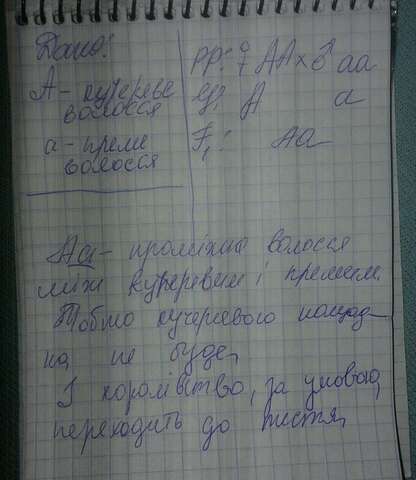 Дано:
А - кучеряве
волосся
а - пряме
волосся
РР: ♀ АА х ♂ аа
G: А а
F₁: Аа
Аа - проміжне волосся
між кучерявим і прямим.
Тобто кучерявого нащад-
ка не буде,
І королівство, за умовою,
переходить до тестя,